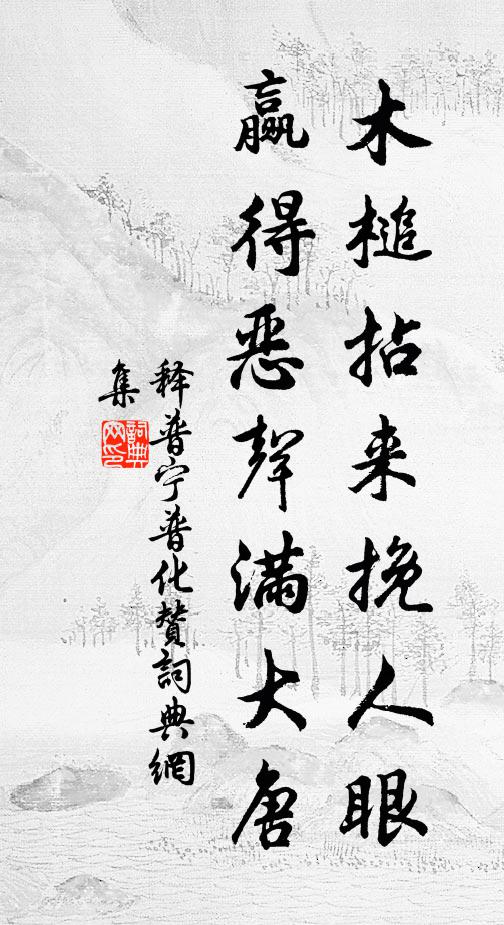 木槌拈来挽人眼
赢得恶声满大唐
释普宁普化赞詞典網
集
詞典网印